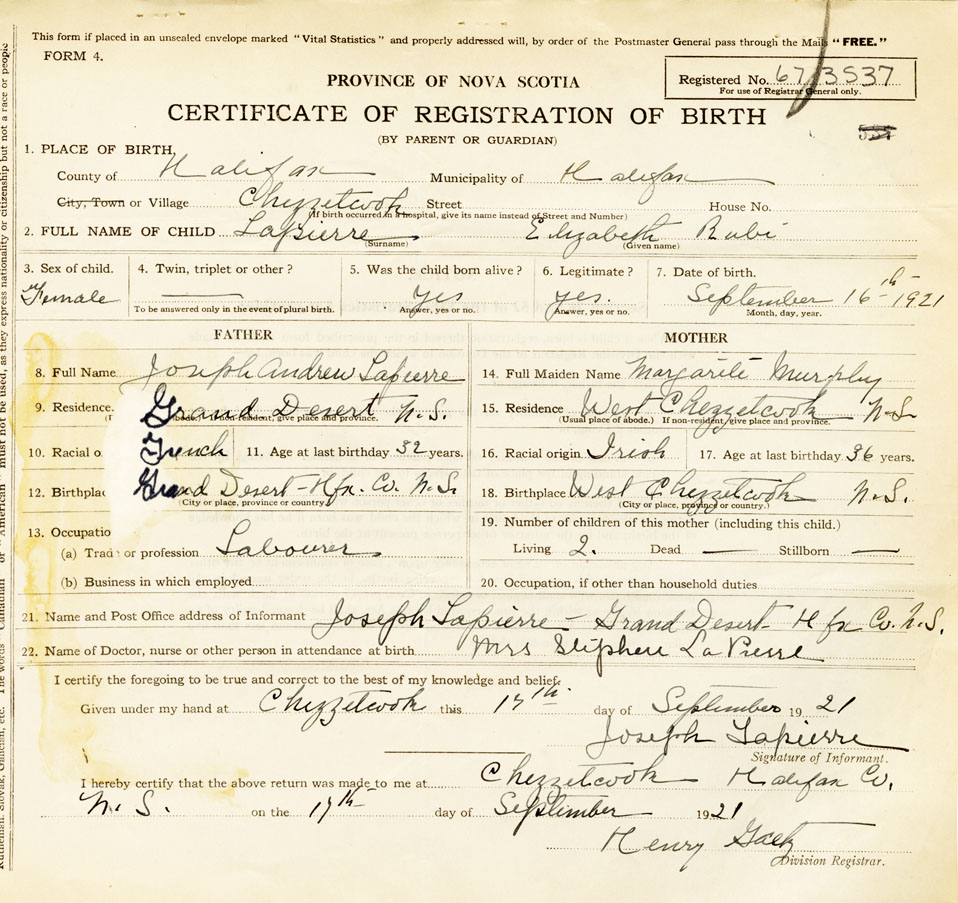 This form if placed in an unsealed envelope marked "Vital Statistics" and properly addressed will, by order of the Postmaster General pass through the Mails "FREE."
FORM 4.
PROVINCE OF NOVA SCOTIA
Registered No. 67 / 3537
For use of Registrar General only.
CERTIFICATE OF REGISTRATION OF BIRTH
(BY PARENT OR GUARDIAN)
1. PLACE OF BIRTH,
County of Halifax Municipality of Halifax
City, Town or Village Chezzetcook Street House No.
(If birth occurred in a hospital, give its name instead of Street and Number)
2. FULL NAME OF CHILD Lapierre Elizabeth Rubi
(Surname) (Given name)
3. Sex of child. 4. Twin, triplet or other? 5. Was the child born alive? 6. Legitimate? 7. Date of birth.
Female — yes yes. September 16th 1921
To be answered only in the event of plural birth. Answer, yes or no. Answer, yes or no. Month, day, year.
FATHER MOTHER
8. Full Name Joseph Andrew Lapierre 14. Full Maiden Name Margarite Murphy
9. Residence. Grand Desert N.S. 15. Residence West Chezzetcook N.S
non-resident, give place and province. (Usual place of abode.) If non-resident, give place and province.
10. Racial o French 11. Age at last birthday 32 years. 16. Racial origin Irish 17. Age at last birthday 36 years.
12. Birthplac Grand Desert - Hfx. Co. N.S. 18. Birthplace West Chezzetcook N.S.
(City or place, province or country) (City or place, province or country.)
13. Occupatio 19. Number of children of this mother (including this child.)
(a) Trad or profession Labourer Living 2. Dead — Stillborn —
(b) Business in which employed 20. Occupation, if other than household duties
21. Name and Post Office address of Informant Joseph Lapierre - Grand Desert - Hfx Co. N.S.
22. Name of Doctor, nurse or other person in attendance at birth Mrs Stephen LaPierre
I certify the foregoing to be true and correct to the best of my knowledge and belief.
Given under my hand at Chezzetcook this 17th day of September 1921
Joseph Lapierre
Signature of Informant.
I hereby certify that the above return was made to me at Chezzetcook Halifax Co.
N.S. on the 17th day of September 1921
Henry
Division Registrar.
Ruthenian, Slovak, Galician, etc. The words "Canadian" or "American" must not be used, as they express nationality or citizenship but not a race or people